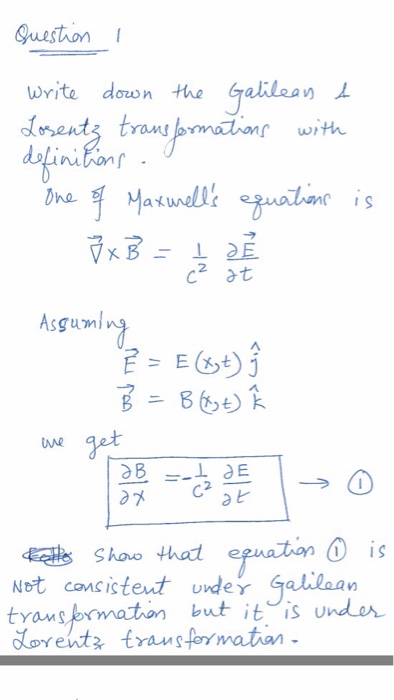 Question 1
Write down the Galilean &
Lorentz transformations with
definitions.
One of Maxwell's equations is
∇⃗ × B⃗ = 1/c² ∂E⃗/∂t
Assuming
E⃗ = E(x,t) ĵ
B⃗ = B(x,t) k̂
we get
∂B/∂x = -1/c² ∂E/∂t → ①
show that equation ① is
NOT consistent under Galilean
transformation but it is under
Lorentz transformation.